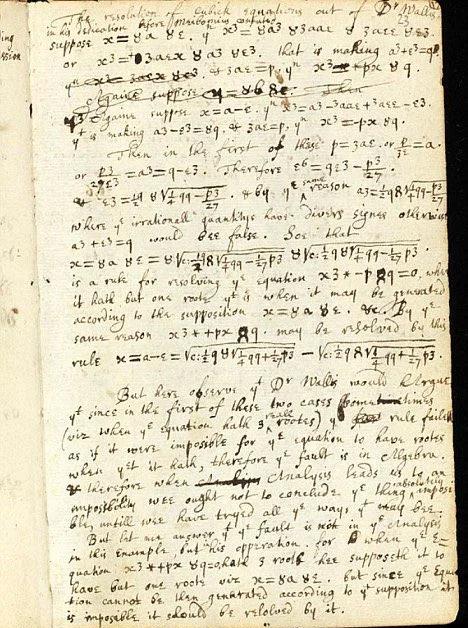 The resolution of Cubick equations out of Dr Wallis
in his dedication before Meibomius confuted
suppose x=8a8e. yn x3=8a3 83aae 8 3aee 8e3.
or x3=3aex 8a3 8e3. that is making a3+e3=q.
& 3ae=p, yn x3 * +px 8q.
Againe suppose x=a-e. yn x3=a3-3aae+3aee-e3.
yt is making a3-e3=8q, & 3ae=p. yn x3=-px 8q.
Then in the first of these p=3ae. or p/3e=a.
or p3/27e3=a3=q-e3. Therefore e6=qe3-p3/27.
& e3=1/2q 8√1/4qq-p3/27. & by ye same reason a3=1/2q8√1/4qq-p3/27
where ye irrationall quantitys have divers signes otherwise
a3+e3=q would bee false. Soe that
x=8a 8e = 8√c:1/2q8√1/4qq-1/27p3 8√c:1/2q8√1/4qq-1/27p3.
is a rule for resolving ye equation x3*-p8q=0, when
it hath but one roote yt is when it may be generated
according to the supposition x=8a 8e. &c. By ye
same reason x3*+px 8q. may be resolved by this
rule x=a-e=√c:1/2q8√1/4qq+1/27p3 -√c:1/2q8√1/4qq+1/27p3.
But here observe yt Dr Wallis would Argue
yt since in the first of these two cases sometimes
(viz when ye equation hath 3 reall rootes) ye rule faileth
as if it were imposible for ye equation to have rootes
when yet it hath, therefore ye fault is in Algebra.
& therefore when Analysis leads us to an
impossibility wee ought not to conclude ye thing absolutely imposi
ble, untill wee have tryed all ye ways yt may bee.
But let mee answer yt ye fault is not in ye Analysis
in this Example, but his opperation. for when ye E=
quation x3*+px 8q=0 hath 3 roots hee supposeth it to
have but one roote viz x=8a 8e. but since ye Equa
tion cannot be then generated according to yt supposition it
is imposible it should be resolved by it.